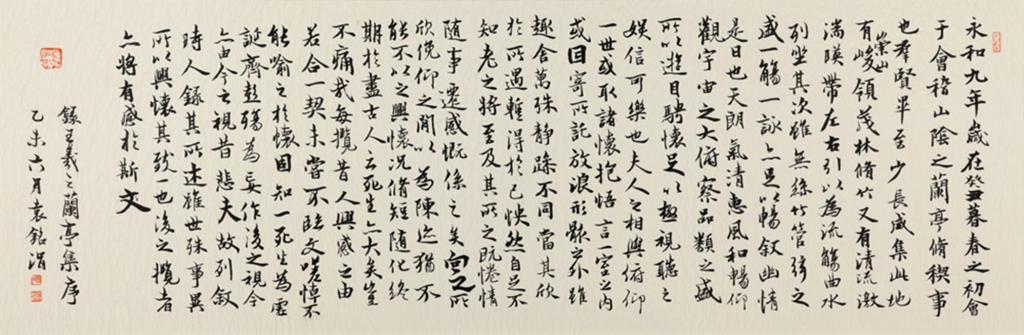 永和九年歲在癸丑暮春之初會
于會稽山陰之蘭亭脩稧事
也羣賢畢至少長咸集此地
有崇山峻領茂林脩竹又有清流激
湍暎帶左右引以為流觴曲水
列坐其次雖無絲竹管弦之
盛一觴一詠亦足以暢敘幽情
是日也天朗氣清惠風和暢仰
觀宇宙之大俯察品類之盛
所以遊目騁懷足以極視聽之
娛信可樂也夫人之相與俯仰
一世或取諸懷抱悟言一室之內
或因寄所託放浪形骸之外雖
趣舍萬殊靜躁不同當其欣
於所遇暫得於己怏然自足不
知老之將至及其所之既惓情
隨事遷感慨係之矣向之所
欣俛仰之閒以為陳迹猶不
能不以之興懷況脩短隨化終
期於盡古人云死生亦大矣豈
不痛哉每攬昔人興感之由
若合一契未嘗不臨文嗟悼不
能喻之於懷固知一死生為虛
誕齊彭殤為妄作後之視今
亦由今之視昔悲夫故列敘
時人錄其所述雖世殊事異
所以興懷其致一也後之攬者
亦將有感於斯文
錄王羲之蘭亭集序
乙未六月袁銘渭